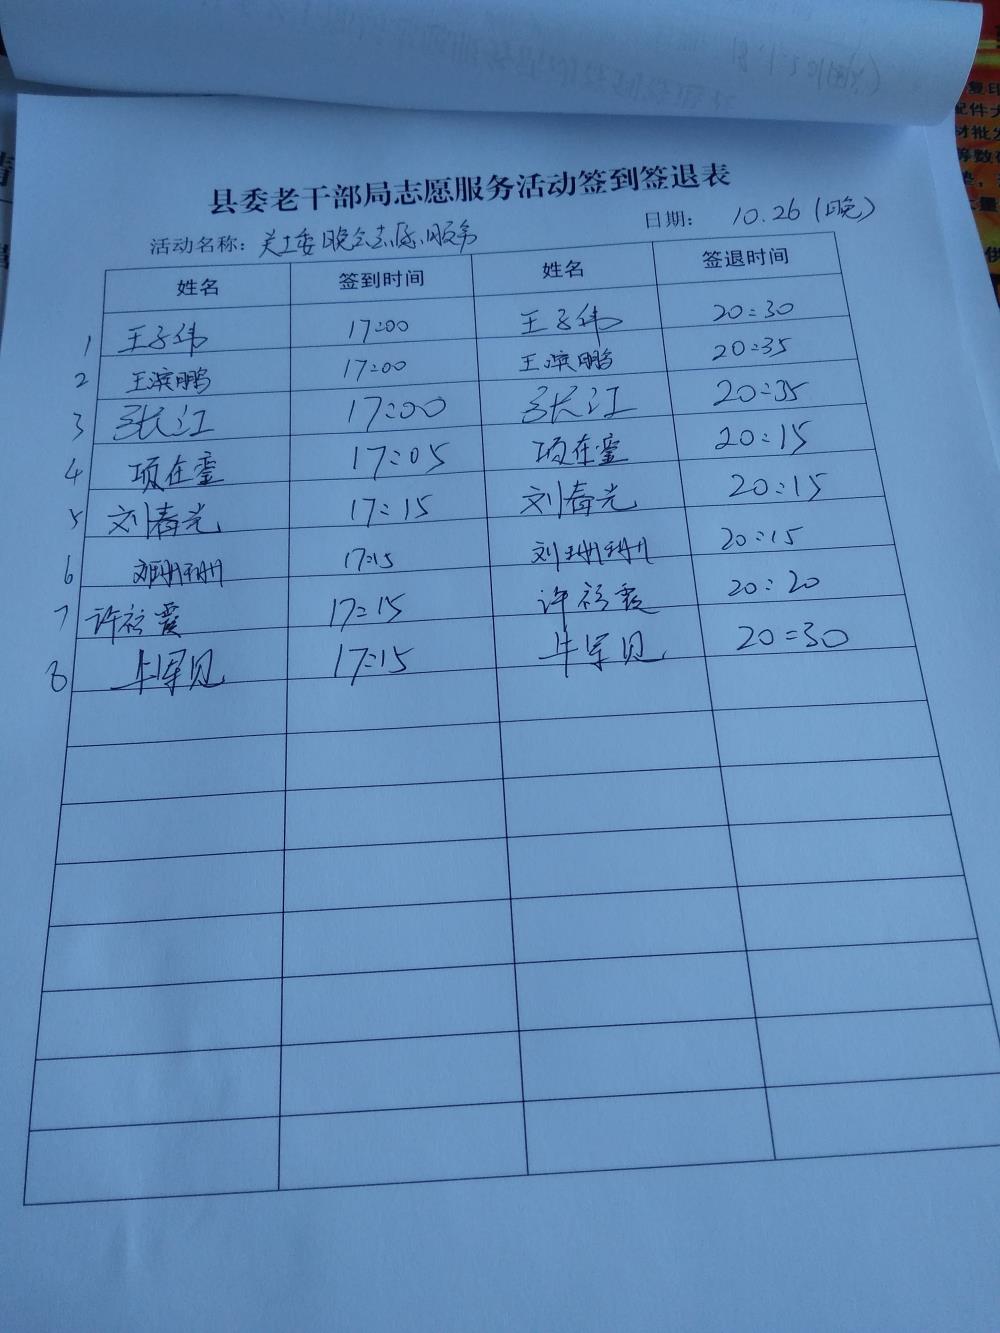 县委老干部局志愿服务活动签到签退表
活动名称: 关工委晚会志愿服务 日期: 10.26(晚)
姓名 签到时间 姓名 签退时间
1 王子伟 17:00 王子伟 20:30
2 王滨鹏 17:00 王滨鹏 20:35
3 张江 17:00 张江 20:35
4 项在銮 17:05 项在銮 20:15
5 刘春光 17:15 刘春光 20:15
6 刘珊珊 17:15 刘珊珊 20:15
7 许衫霞 17:15 许衫霞 20:20
8 牟军见 17:15 牟军见 20:30
复印
配件大
材批发
等数